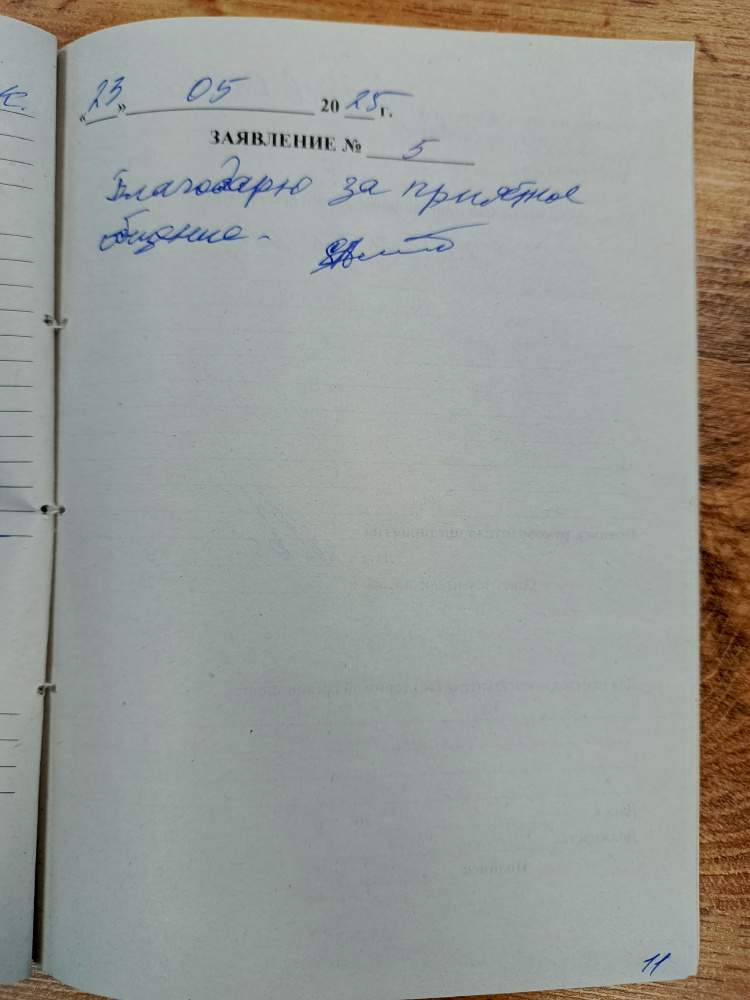 «23» 05 2025 г.
ЗАЯВЛЕНИЕ № 5
Благодарю за приятное
общение.
11